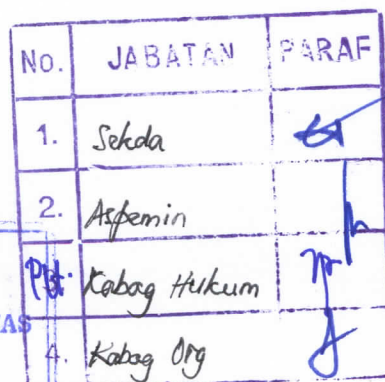 No. JABATAN PARAF
1. Sekda
2. Aspemin
Plt. Kabag Hukum
4. Kabag Org
AS